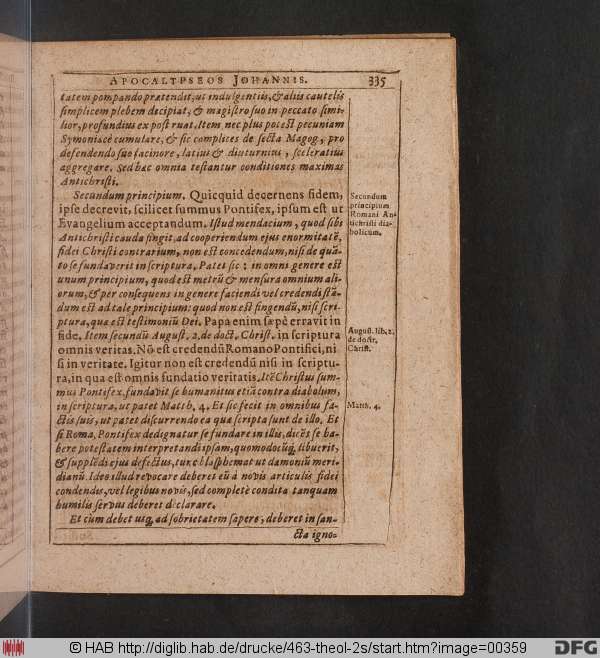 APOCALYPSEOS JOHANNIS. 335
tatem pompando prætendit, ut indulgentiis, & aliis cautelis
simplicem plebem decipiat, & magistro suo in peccato simi-
lior, profundius ex post ruat. Item nec plus potest pecuniam
Symoniacè cumulare, & sic complices de secta Magog, pro
defendendo suo facinore, latius & diuturnius, sceleratius
aggregare. Sed hæc omnia testantur conditiones maximas
Antichristi.
Secundum principium. Quicquid decernens fidem,
ipse decrevit, scilicet summus Pontifex, ipsum est ut
Evangelium acceptandum. Istud mendacium, quod sibi
Antichristi cauda fingit, ad cooperiendum ejus enormitatē,
fidei Christi contrarium, non est concedendum, nisi de quā-
to se fundaverit in scriptura. Patet sic: in omni genere est
unum principium, quod est metrū & mensura omnium ali-
orum, & per consequens in genere faciendi vel credendi stā-
dum est ad tale principium: quod non est fingendū, nisi scri-
ptura, quæ est testimoniū Dei. Papa enim sæpè erravit in
fide. Item secundū August. 2. de doct. Christ. in scriptura
omnis veritas. Nō est credendū Romano Pontifici, ni-
si in veritate. Igitur non est credendū nisi in scriptu-
ra, in qua est omnis fundatio veritatis. Itē Christus sum-
mus Pontifex, fundavit se humanitus etiā contra diabolum,
in scriptura, ut patet Matth. 4. Et sic fecit in omnibus fa-
ctis suis, ut patet discurrendo ea quæ scripta sunt de illo. Et
si Roma. Pontifex dedignatur se fundare in illis, dicēs se ha-
bere potestatem interpretandi ipsam, quomodocūq; libuerit,
& supplēdi ejus defectus, tunc blasphemat ut damoniū meri-
dianū. Ideo illud revocare deberet eū à novis articulis fidei
condendis, vel legibus novis, sed completè condita tanquam
humilis servus deberet declarare.
Et cùm debet usq; ad sobrietatem sapere, deberet in san-
cta igno-
Secundum
principium
Romani An-
tichristi dia-
bolicum.
August. lib. 2.
de doctr.
Christ.
Matth. 4.
© HAB http://diglib.hab.de/drucke/463-theol-2s/start.htm?image=00359
DFG